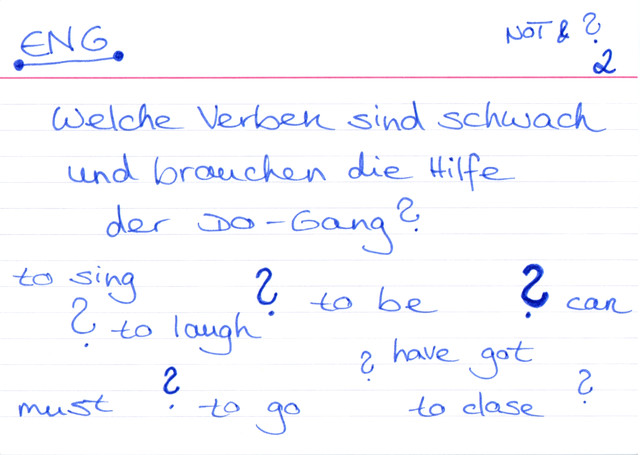 ENG.
NOT & ?
2
Welche Verben sind schwach
und brauchen die Hilfe
der DO-Gang?
to sing ? to be ? can
? to laugh
? have got
must ? to go to close ?